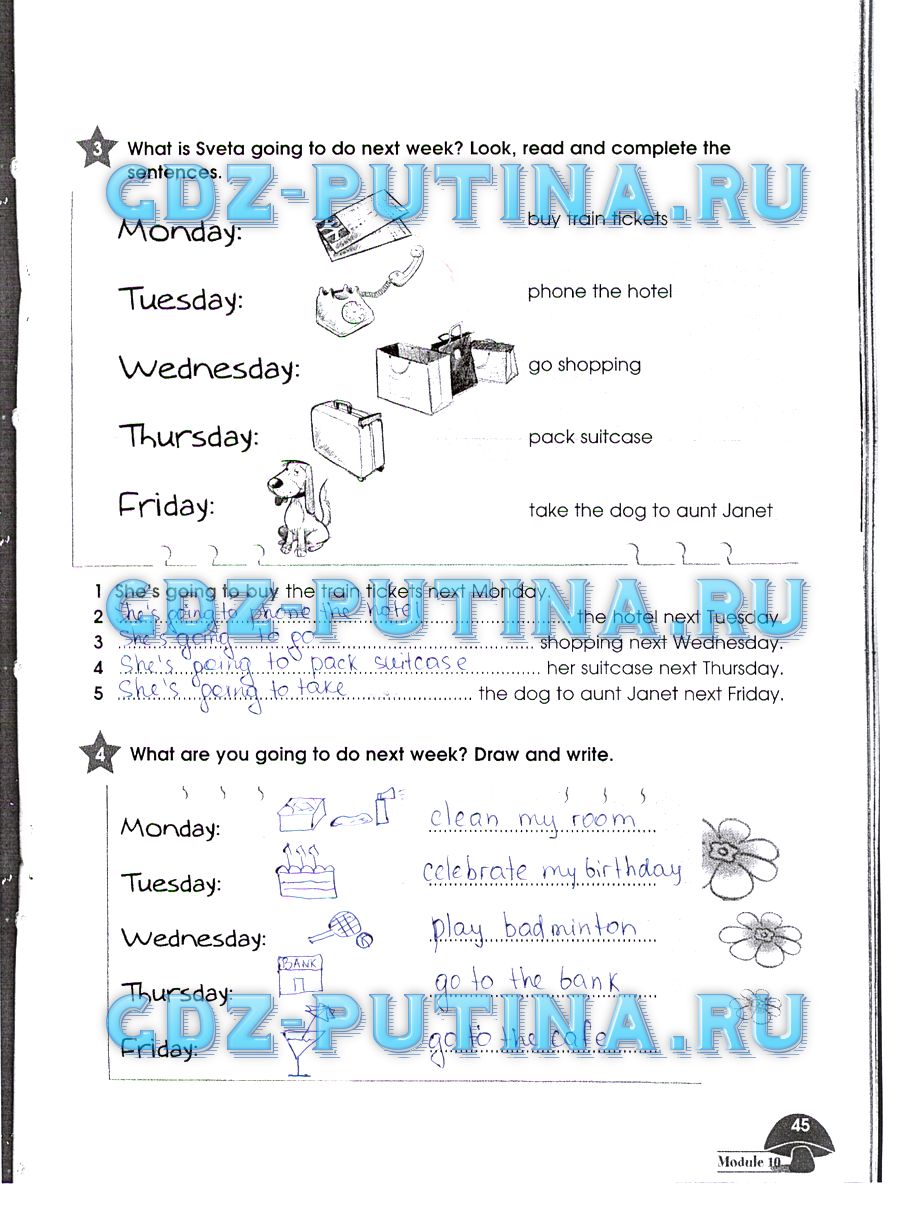 3 What is Sveta going to do next week? Look, read and complete the
sentences.
GDZ-PUTINA.RU
Monday: buy train tickets
Tuesday: phone the hotel
Wednesday: go shopping
Thursday: pack suitcase
Friday: take the dog to aunt Janet
GDZ-PUTINA.RU
1 She's going to buy the train tickets next Monday.
2 She's going to phone the hotel the hotel next Tuesday.
3 She's going to go shopping next Wednesday.
4 She's going to pack suitcase her suitcase next Thursday.
5 She's going to take the dog to aunt Janet next Friday.
4 What are you going to do next week? Draw and write.
Monday: clean my room
Tuesday: celebrate my birthday
Wednesday: play badminton
BANK
Thursday: go to the bank
GDZ-PUTINA.RU
Friday: go to the cafe
45
Module 10